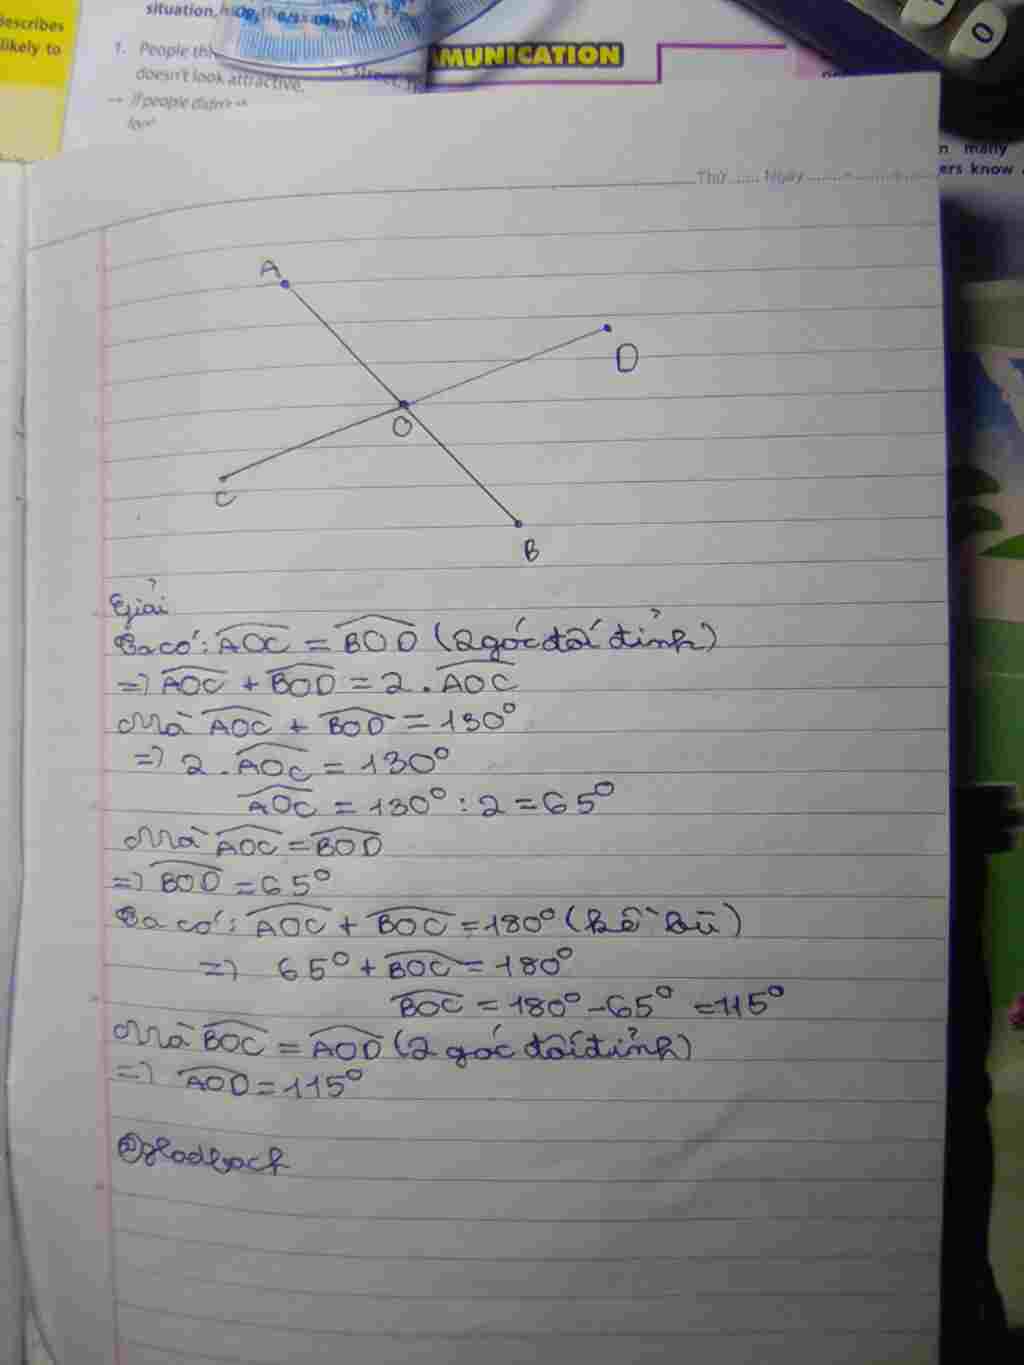 escribes
likely to
situation,
1. People thi
doesn't look attractive.
street,
→ If people didn't
MUNICATION
n many
ers know
Thứ ...... Ngày
A
D
O
C
B
Giải
Ta có: AOC = BOD (2 góc đối đỉnh)
=> AOC + BOD = 2 . AOC
Mà AOC + BOD = 130°
=> 2 . AOC = 130°
AOC = 130° : 2 = 65°
Mà AOC = BOD
=> BOD = 65°
Ta có: AOC + BOC = 180° (kề bù)
=> 65° + BOC = 180°
BOC = 180° - 65° = 115°
Mà BOC = AOD (2 góc đối đỉnh)
=> AOD = 115°